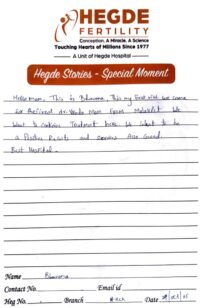 HEGDE
FERTILITY
Conception. A Miracle. A Science
Touching Hearts of Millions Since 1977
A Unit of Hegde Hospital
Hegde Stories - Special Moment
Hello mam, This is Bhavana, This my first visit we came
for Referred dr. Vanda Mam From Malakpet. We
Want to continue Treatment here. We want to be
a Positive Results and services Also Good.
Best Hospital.
Name Bhavana
Contact No. Email id
Heg No. Branch Date